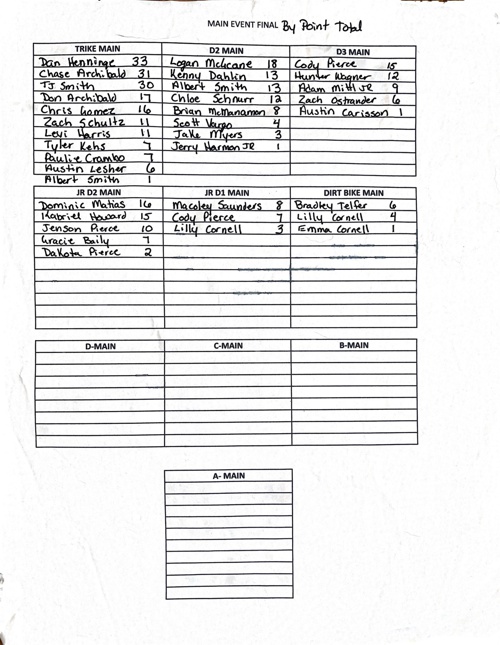 MAIN EVENT FINAL By Point Total
TRIKE MAIN
Dan Henninge 33
Chase Archibald 31
TJ Smith 30
Don Archibald 17
Chris Gomez 16
Zach Schultz 11
Levi Harris 11
Tyler Kehs 7
Paulie Crambo 7
Austin Lesher 6
Albert Smith 1
D2 MAIN
Logan McLicane 18
Kenny Dahlin 13
Albert Smith 13
Chloe Schnurr 12
Brian McManamon 8
Scott Vargo 4
Jake Myers 3
Jerry Harmon JR 1
D3 MAIN
Cody Pierce 15
Hunter Wagner 12
Adam Mittl JR 9
Zach Ostrander 6
Austin Carisson 1
JR D2 MAIN
Dominic Matias 16
Kabriel Howard 15
Jenson Pierce 10
Gracie Baily 7
Dakota Pierce 2
JR D1 MAIN
Macoley Saunders 8
Cody Pierce 7
Lilly Cornell 3
DIRT BIKE MAIN
Bradley Telfer 6
Lilly Cornell 4
Emma Cornell 1
D-MAIN
C-MAIN
B-MAIN
A- MAIN